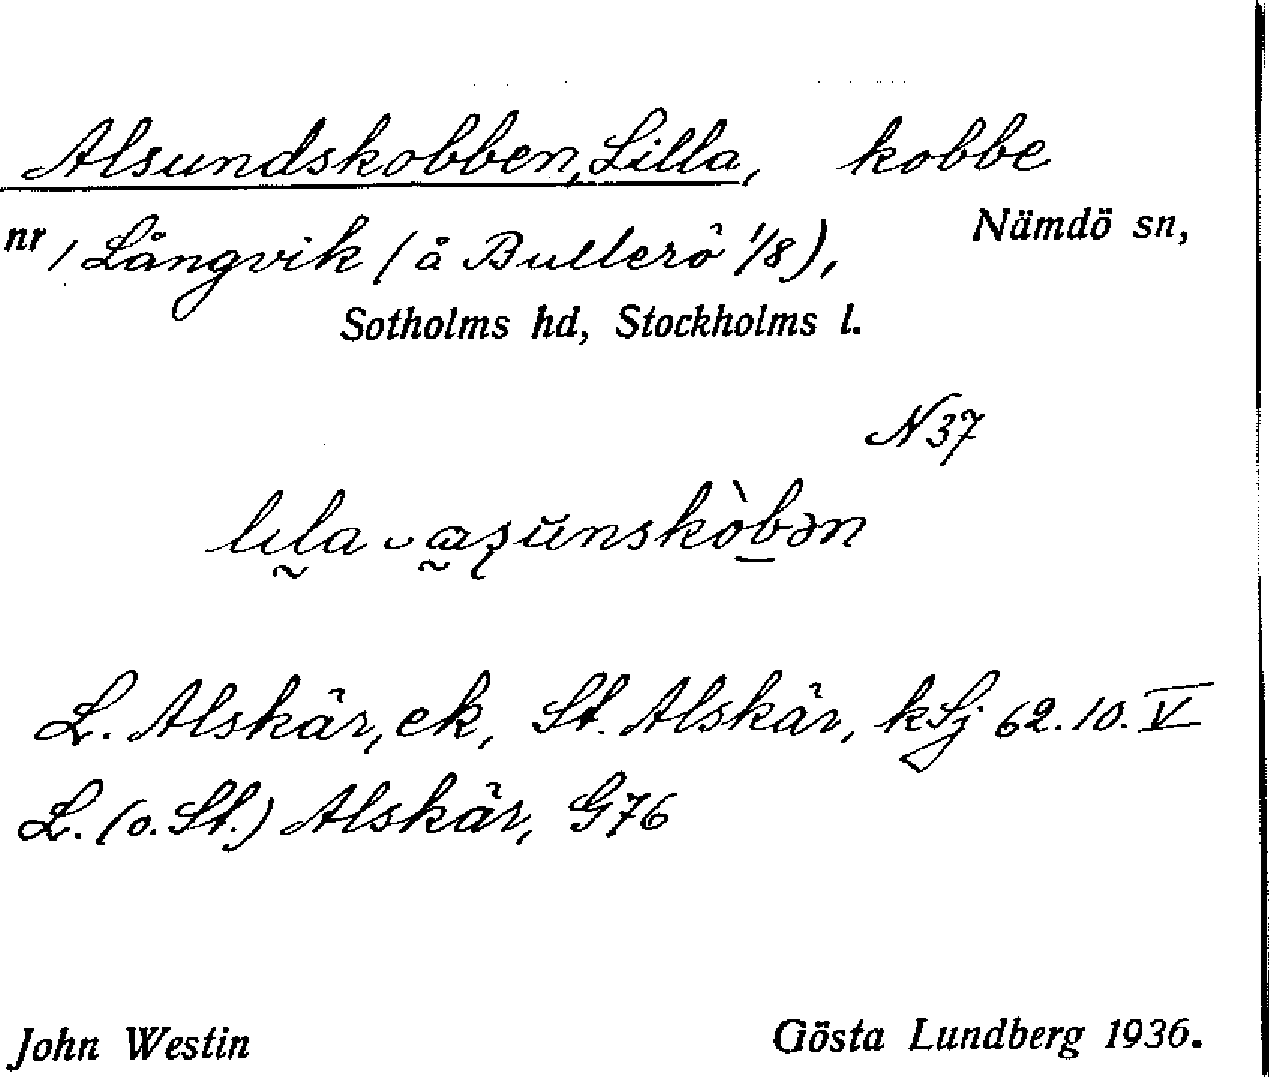 Alsundskobben, Lilla, kobbe
nr 1 Långvik (å Bullerö 1/8), Nämdö sn,
Sotholms hd, Stockholms l.
N37
L. Alskär, ek, St. Alskär, kSj 62.10.V
L. (o. St.) Alskär, G76
John Westin Gösta Lundberg 1936.